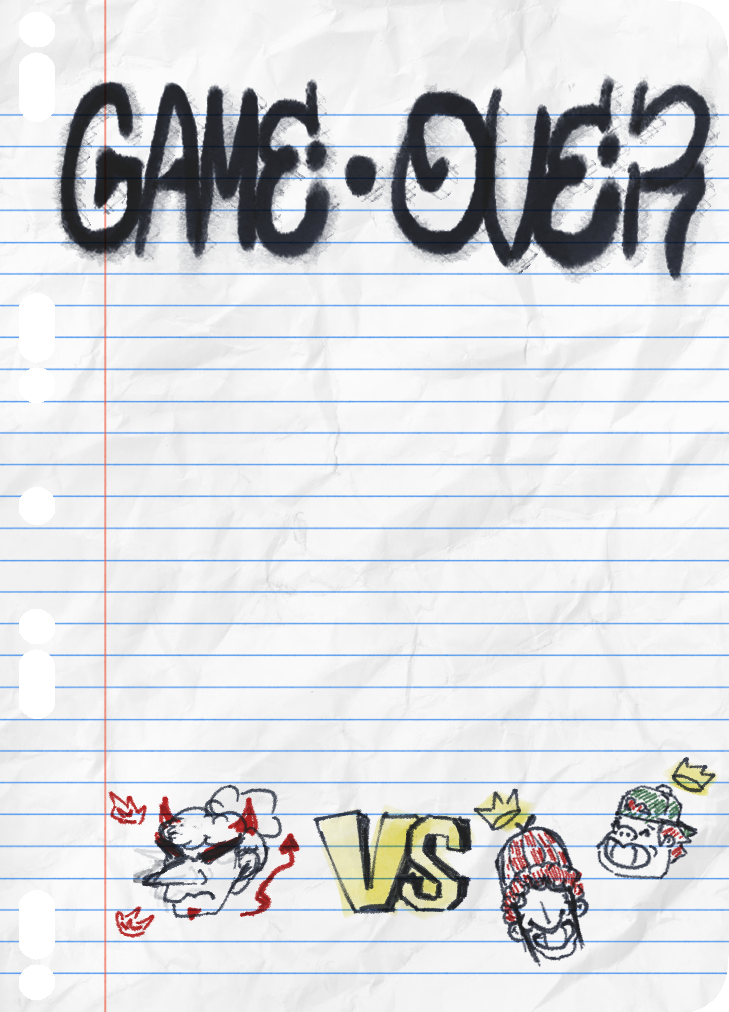 GAME • OVER
VS